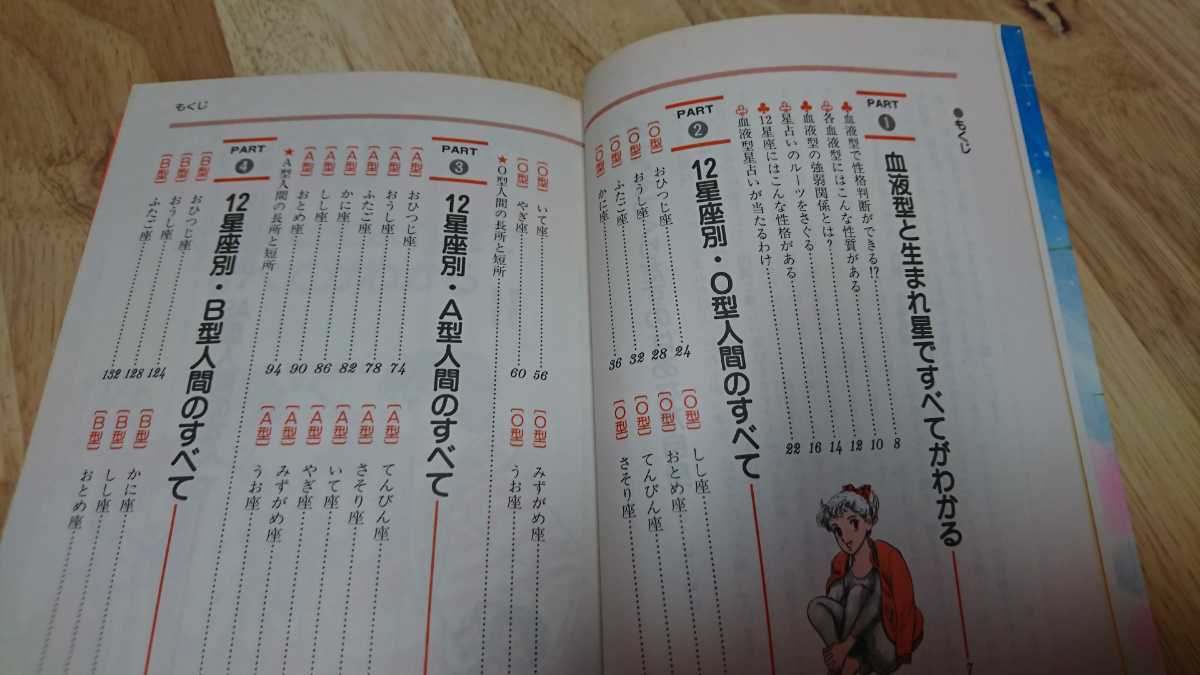 ●もくじ
PART
1
血液型と生まれ星ですべてがわかる
7
♣血液型で性格判断ができる!?……8
♧各血液型にはこんな性質がある……10
♣血液型の強弱関係とは?……12
♧星占いのルーツをさぐる……14
♣12星座にはこんな性格がある……16
♧血液型星占いが当たるわけ……22
PART
2
12星座別・O型人間のすべて
[O型] おひつじ座……24
[O型] おうし座……28
[O型] ふたご座……32
[O型] かに座……36
[O型] しし座
[O型] おとめ座
[O型] てんびん座
[O型] さそり座
もくじ
[O型] いて座……56
[O型] やぎ座……60
[O型] みずがめ座
[O型] うお座
★O型人間の長所と短所
PART
3
12星座別・A型人間のすべて
[A型] おひつじ座……74
[A型] おうし座……78
[A型] ふたご座……82
[A型] かに座……86
[A型] しし座……90
[A型] おとめ座……94
[A型] てんびん座
[A型] さそり座
[A型] いて座
[A型] やぎ座
[A型] みずがめ座
[A型] うお座
★A型人間の長所と短所
PART
4
12星座別・B型人間のすべて
[B型] おひつじ座……124
[B型] おうし座……128
[B型] ふたご座……132
[B型] かに座
[B型] しし座
[B型] おとめ座